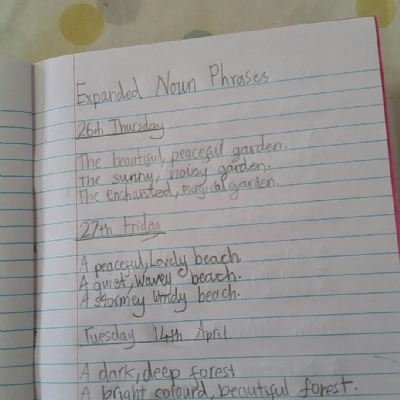 Expanded Noun Phrases
26th Thursday
The beautiful, peaceful garden.
The sunny, noisy garden.
The enchanted, magical garden.
27th Friday
A peaceful, Lovely beach.
A quiet, Wavey beach.
A stormey windy beach.
Tuesday 14th April
A dark, deep forest
A bright colourd, beautiful forest.